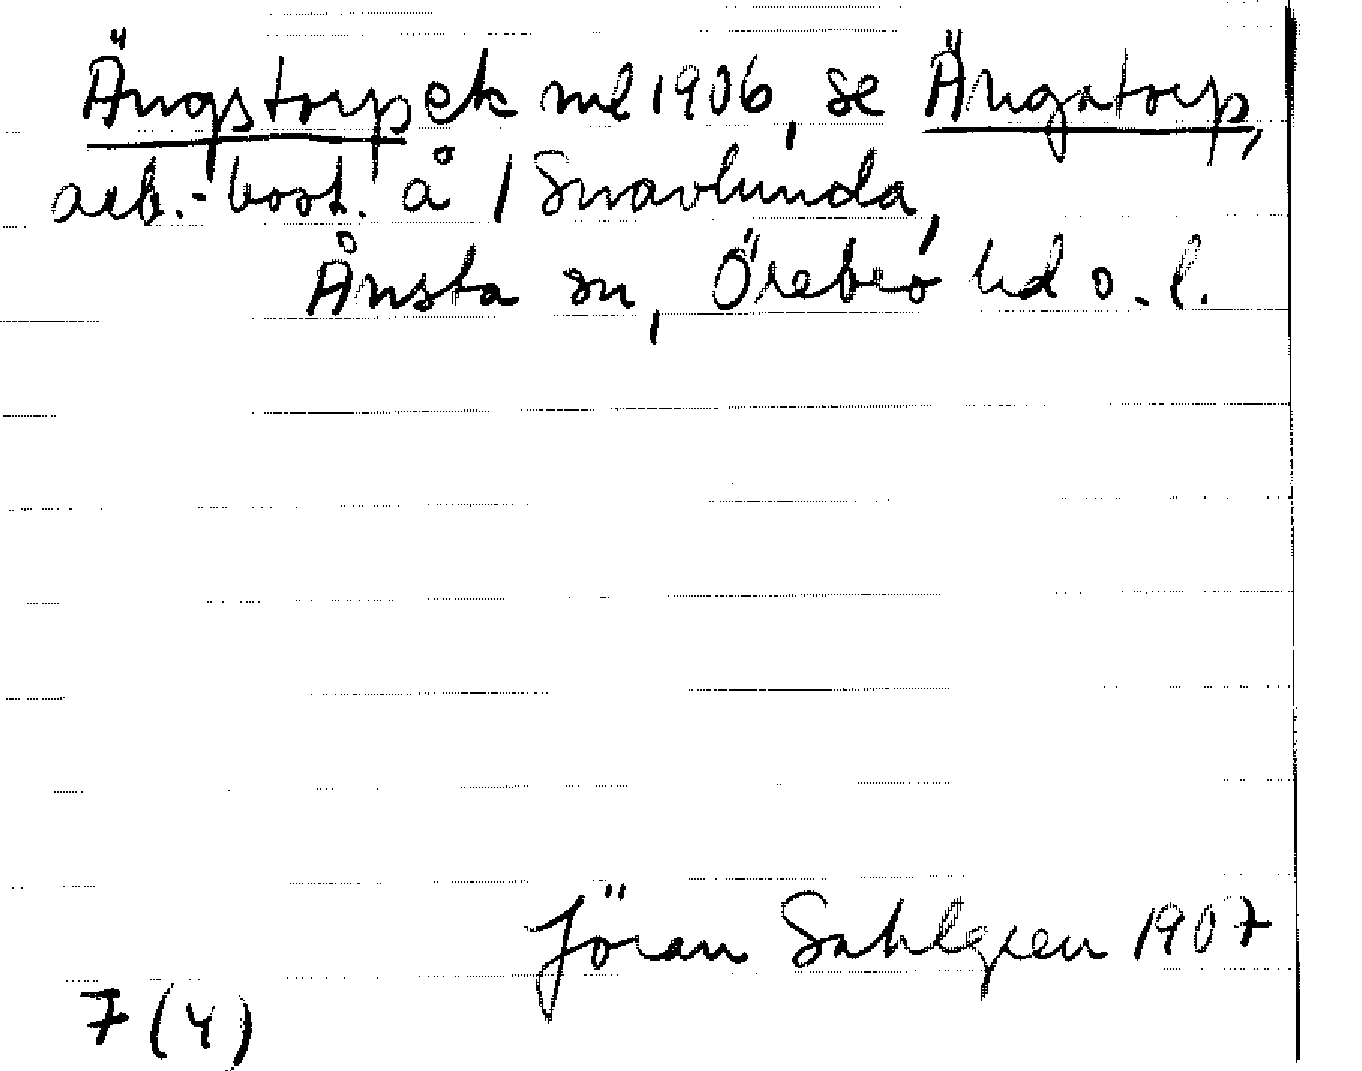 Ängstorp ek ml 1906, se Ängatorp,
arb.-bost. å 1 Snavlunda,
Ånsta sn, Örebro hd o. l.
Jöran Sahlgren 1907
7 (4)